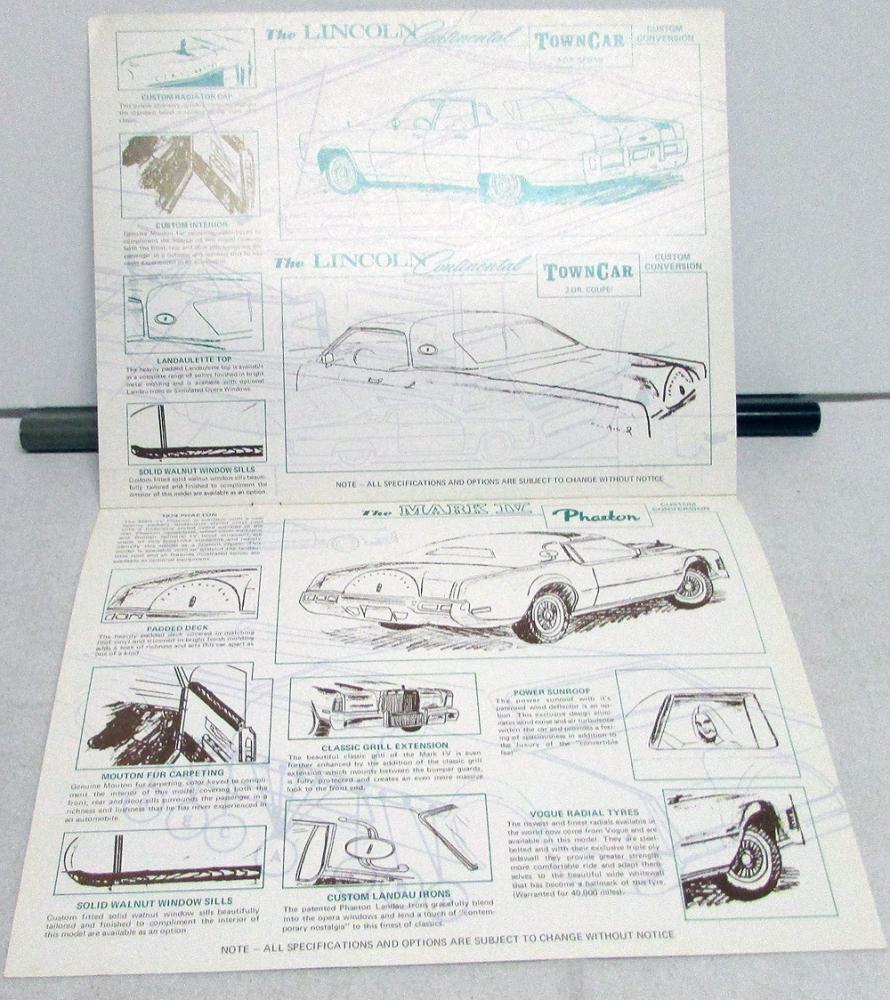 The LINCOLN Continental
TOWNCAR
4 DR. SEDAN
CUSTOM
CONVERSION
CUSTOM RADIATOR CAP
CUSTOM INTERIOR
Genuine Mouton fur carpeting, color keyed to
compliment the interior of this model
The LINCOLN Continental
TOWNCAR
2 DR. COUPE
CUSTOM
CONVERSION
LANDAULETTE TOP
The heavily padded Landaulette top is available
in a complete range of colors finished in bright
metal molding and is available with optional
Landau Irons or Simulated Opera Windows.
SOLID WALNUT WINDOW SILLS
Custom fitted solid walnut window sills beauti-
fully tailored and finished to compliment the
interior of this model are available as an option.
NOTE – ALL SPECIFICATIONS AND OPTIONS ARE SUBJECT TO CHANGE WITHOUT NOTICE
1974 PHAETON
The MARK IV
Phaeton
CUSTOM
CONVERSION
PADDED DECK
The heavily padded deck covered in matching
roof vinyl and trimmed in bright finish molding
adds a look of richness and sets this car apart as
one of a kind.
MOUTON FUR CARPETING
Genuine Mouton fur carpeting, color keyed to compli-
ment the interior of this model covering both the
front, rear and door sills surrounds the passenger in a
richness and lushness that he has never experienced in
an automobile.
CLASSIC GRILL EXTENSION
The beautiful classic grill of the Mark IV is even
further enhanced by the addition of the classic grill
extension which mounts between the bumper guards,
is fully protected and creates an even more massive
look to the front end.
POWER SUNROOF
The power sunroof with it's
patented wind deflector is an op-
tion. This exclusive design elimi-
nates wind noise and air turbulence
within the car and provides a feel-
ing of spaciousness in addition to
the luxury of the "convertible
feel"
SOLID WALNUT WINDOW SILLS
Custom fitted solid walnut window sills beautifully
tailored and finished to compliment the interior of
this model are available as an option.
CUSTOM LANDAU IRONS
The patented Phaeton Landau Irons gracefully blend
into the opera windows and lend a touch of "contem-
porary nostalgia" to this finest of classics.
VOGUE RADIAL TYRES
The newest and finest radials available in
the world now come from Vogue and are
available on this model. They are steel-
belted and with their exclusive triple ply
sidewall they provide greater strength,
more comfortable ride and adapt them-
selves to the beautiful wide whitewall
that has become a hallmark of this tyre.
(Warranted for 40,000 miles).
NOTE – ALL SPECIFICATIONS AND OPTIONS ARE SUBJECT TO CHANGE WITHOUT NOTICE